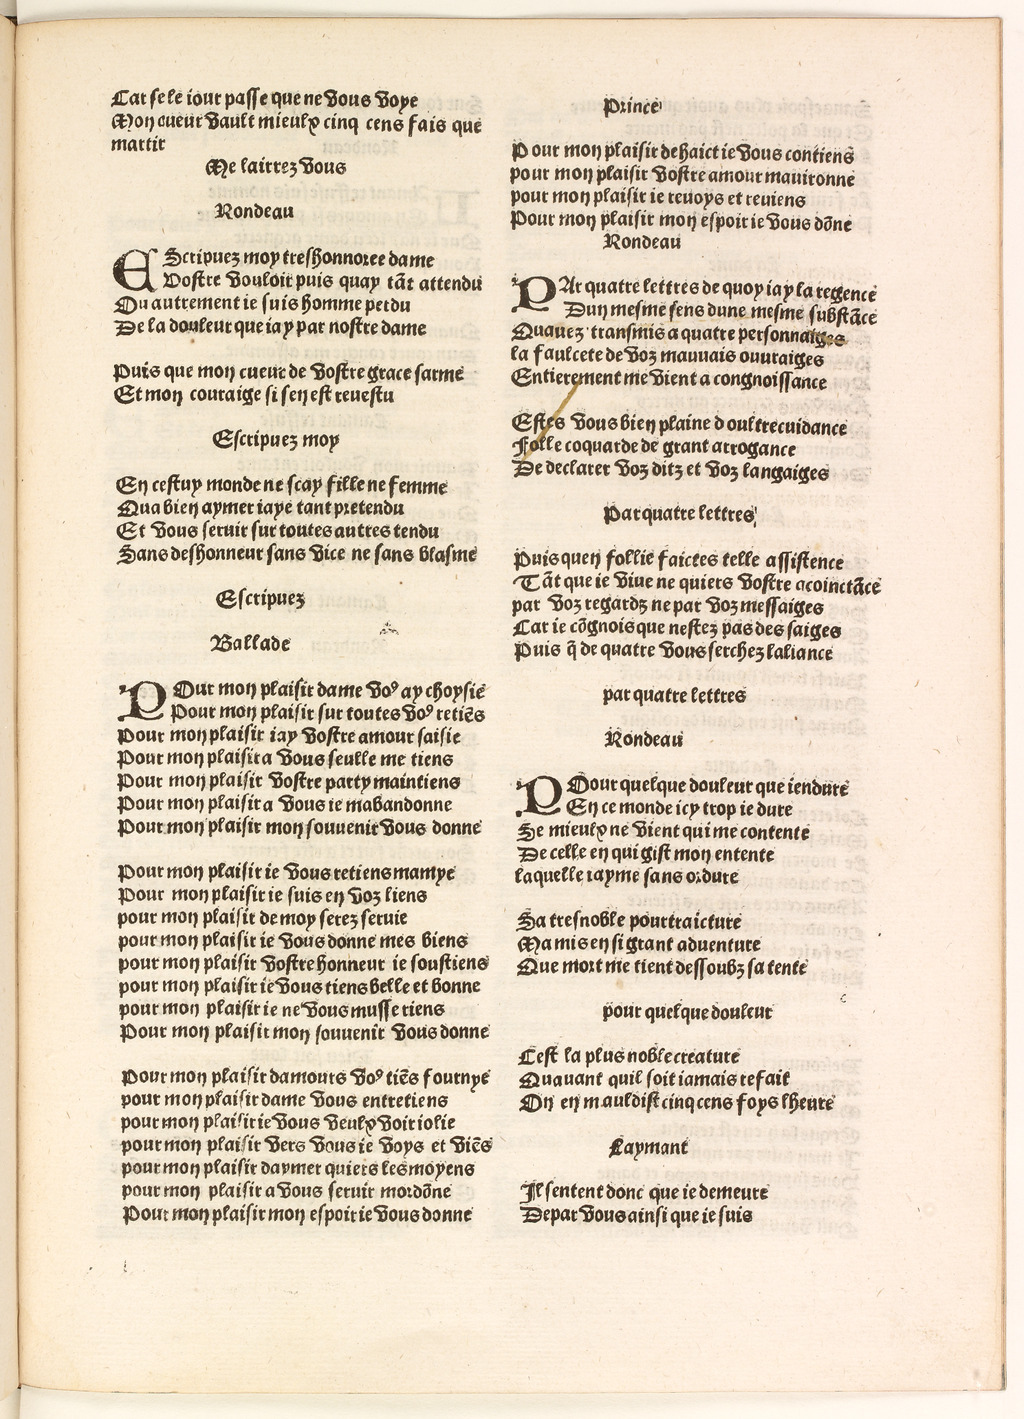 Car se le iour passe que ne vous voye
Mon cueur vault mieulx cinq cens fais que
martir
Me lairrez vous
Rondeau
EScripuez moy treshonnoree dame
Vostre vouloir puis quay tāt attendu
Ou autrement ie suis homme perdu
De la douleur que iay par nostre dame
Puis que mon cueur de vostre grace sarme
Et mon couraige si sen est reuestu
Escripuez moy
En cestuy monde ne scay fille ne femme
Qua bien aymer iaye tant pretendu
Et vous seruir sur toutes autres tendu
Sans deshonneur sans vice ne sans blasme
Escripuez
Ballade
POur mon plaisir dame voꝰ ay choysie
Pour mon plaisir sur toutes voꝰ retiēs
Pour mon plaisir iay vostre amour saisie
Pour mon plaisir a vous seulle me tiens
Pour mon plaisir vostre party maintiens
Pour mon plaisir a vous ie mabandonne
Pour mon plaisir mon souuenir vous donne
Pour mon plaisir ie vous retiens mamye
Pour mon plaisir ie suis en voz liens
pour mon plaisir de moy serez seruie
pour mon plaisir ie vous donne mes biens
pour mon plaisir vostre honneur ie soustiens
pour mon plaisir ie vous tiens belle et bonne
pour mon plaisir ie ne vous musse riens
Pour mon plaisir mon souuenir vous donne
Pour mon plaisir damours voꝰ tiēs fournye
pour mon plaisir dame vous entretiens
pour mon plaisir ie vous veulx voir iolie
pour mon plaisir vers vous ie voys et viēs
pour mon plaisir daymer quiers les moyens
pour mon plaisir a vous seruir mordōne
Pour mon plaisir mon espoir ie vous donne
Prince
Pour mon plaisir dehaict ie vous contiens
pour mon plaisir vostre amour mauironne
pour mon plaisir ie reuoys et reuiens
Pour mon plaisir mon espoir ie vous dōne
Rondeau
PAr quatre lettres de quoy iay la regence
Dun mesme sens dune mesme substāce
Quauez transmis a quatre personnaiges
la faulcete de voz mauuais ouuraiges
Entierement me vient a congnoissance
Estes vous bien plaine doultrecuidance
Folle coquarde de grant arrogance
De declarer voz ditz et voz langaiges
Par quatre lettres
Puis quen follie faictes telle assistence
Tāt que ie viue ne quiers vostre acoinctāce
par voz regardz ne par voz messaiges
Car ie cōgnois que nestez pas des saiges
Puis q̄ de quatre vous serchez laliance
par quatre lettres
Rondeau
POour quelque douleur que iendure
En ce monde icy trop ie dure
Se mieulx ne vient qui me contente
De celle en qui gist mon entente
laquelle iayme sans ordure
Sa tresnoble pourtraicture
Ma mis en si grant aduenture
Que mort me tient dessoubz sa tente
pour quelque douleur
Cest la plus noble creature
Quauant quil soit iamais refait
On en mauldist cinq cens foys lheure
Laymant
Il sentent donc que ie demeure
Depar vous ainsi que ie suis